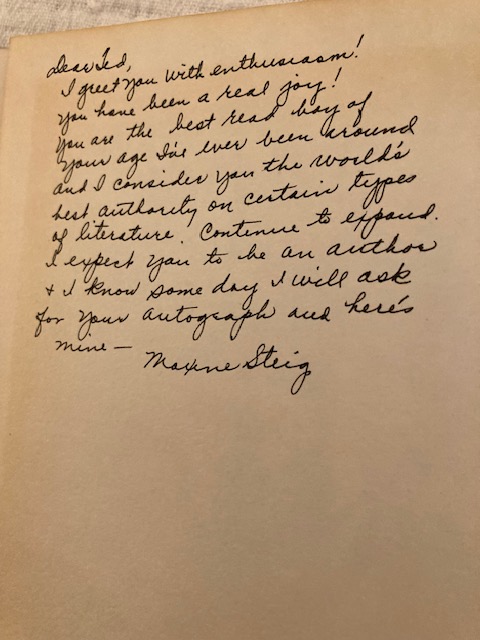 Dear Ted,
I greet you with enthusiasm!
You have been a real joy!
You are the best read boy of
your age I've ever been around
and I consider you the world's
best authority on certain types
of literature! Continue to expand.
I expect you to be an author
+ I know some day I will ask
for your autograph and here's
mine —
Maxine Steig